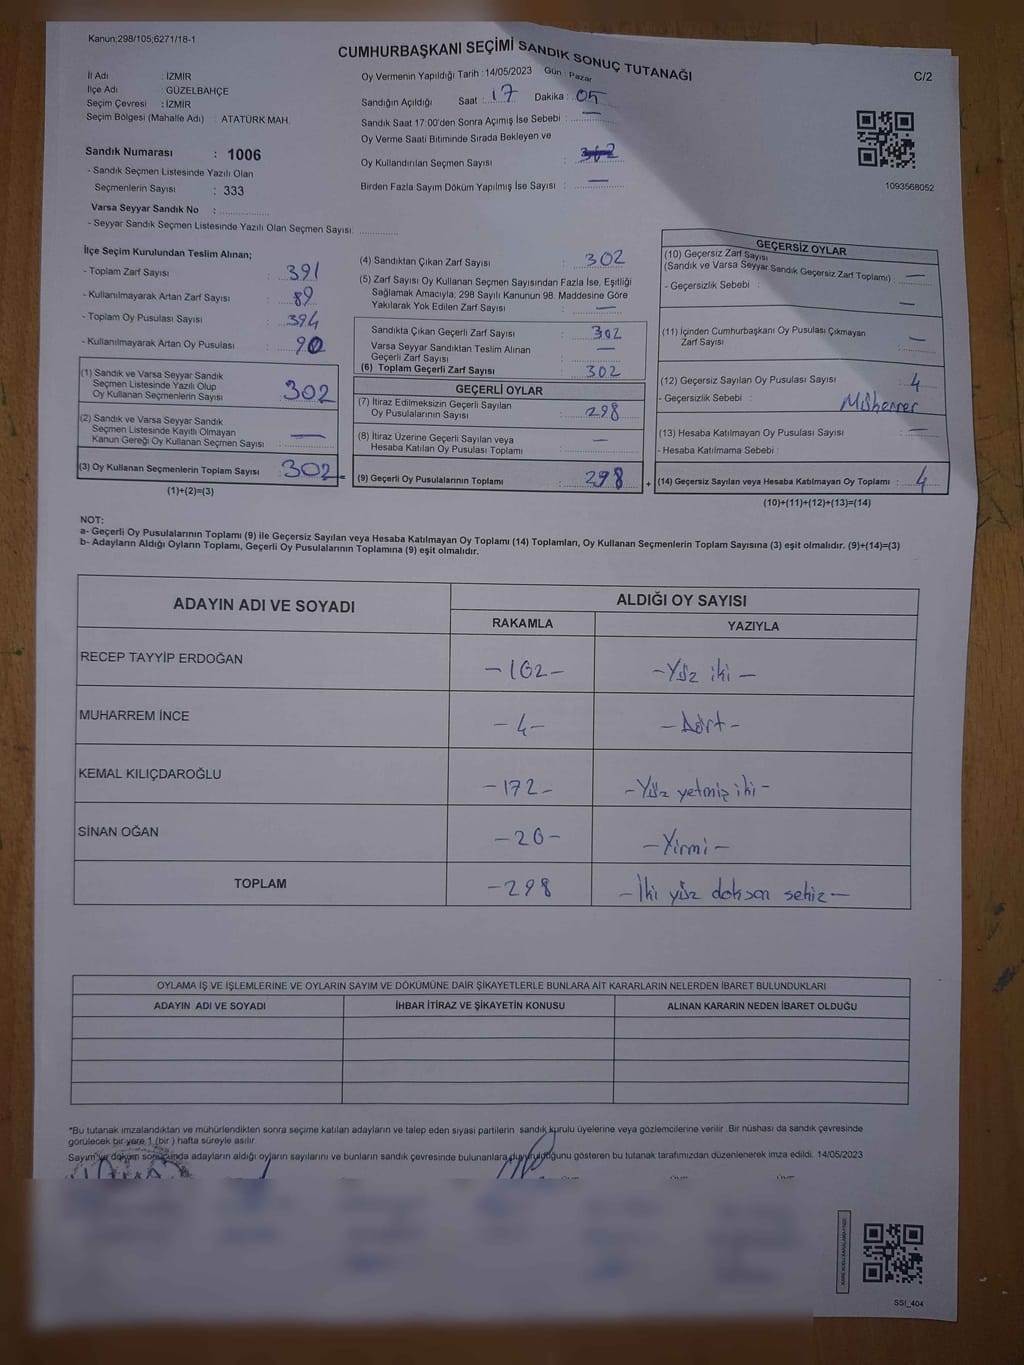 Kanun;298/105;6271/18-1
CUMHURBAŞKANI SEÇİMİ SANDIK SONUÇ TUTANAĞI
C/2
İl Adı : İZMİR
İlçe Adı : GÜZELBAHÇE
Seçim Çevresi : İZMİR
Seçim Bölgesi (Mahalle Adı) : ATATÜRK MAH.
Oy Vermenin Yapıldığı Tarih : 14/05/2023 Gün : Pazar
Sandığın Açıldığı Saat : 17 Dakika : 05
Sandık Saat 17:00'den Sonra Açımış İse Sebebi : —
Oy Verme Saati Bitiminde Sırada Bekleyen ve
Oy Kullandırılan Seçmen Sayısı :
Birden Fazla Sayım Döküm Yapılmış İse Sayısı : —
1093568052
Sandık Numarası : 1006
- Sandık Seçmen Listesinde Yazılı Olan
Seçmenlerin Sayısı : 333
Varsa Seyyar Sandık No :
- Seyyar Sandık Seçmen Listesinde Yazılı Olan Seçmen Sayısı:
İlçe Seçim Kurulundan Teslim Alınan;
- Toplam Zarf Sayısı : 391
- Kullanılmayarak Artan Zarf Sayısı : 89
- Toplam Oy Pusulası Sayısı : 394
- Kullanılmayarak Artan Oy Pusulası : 90
(1) Sandık ve Varsa Seyyar Sandık
Seçmen Listesinde Yazılı Olup
Oy Kullanan Seçmenlerin Sayısı : 302
(2) Sandık ve Varsa Seyyar Sandık
Seçmen Listesinde Kayıtlı Olmayan
Kanun Gereği Oy Kullanan Seçmen Sayısı : —
(3) Oy Kullanan Seçmenlerin Toplam Sayısı : 302
(1)+(2)=(3)
(4) Sandıktan Çıkan Zarf Sayısı : 302
(5) Zarf Sayısı Oy Kullanan Seçmen Sayısından Fazla İse, Eşitliği
Sağlamak Amacıyla, 298 Sayılı Kanunun 98. Maddesine Göre
Yakılarak Yok Edilen Zarf Sayısı : —
Sandıkta Çıkan Geçerli Zarf Sayısı : 302
Varsa Seyyar Sandıktan Teslim Alınan
Geçerli Zarf Sayısı : —
(6) Toplam Geçerli Zarf Sayısı : 302
GEÇERLİ OYLAR
(7) İtiraz Edilmeksizin Geçerli Sayılan
Oy Pusulalarının Sayısı : 298
(8) İtiraz Üzerine Geçerli Sayılan veya
Hesaba Katılan Oy Pusulası Toplamı : —
(9) Geçerli Oy Pusulalarının Toplamı : 298
GEÇERSİZ OYLAR
(10) Geçersiz Zarf Sayısı
(Sandık ve Varsa Seyyar Sandık Geçersiz Zarf Toplamı) : —
- Geçersizlik Sebebi : —
(11) İçinden Cumhurbaşkanı Oy Pusulası Çıkmayan
Zarf Sayısı : —
(12) Geçersiz Sayılan Oy Pusulası Sayısı : 4
- Geçersizlik Sebebi :
(13) Hesaba Katılmayan Oy Pusulası Sayısı : —
- Hesaba Katılmama Sebebi :
(14) Geçersiz Sayılan veya Hesaba Katılmayan Oy Toplamı : 4
(10)+(11)+(12)+(13)=(14)
NOT:
a- Geçerli Oy Pusulalarının Toplamı (9) ile Geçersiz Sayılan veya Hesaba Katılmayan Oy Toplamı (14) Toplamları, Oy Kullanan Seçmenlerin Toplam Sayısına (3) eşit olmalıdır. (9)+(14)=(3)
b- Adayların Aldığı Oyların Toplamı, Geçerli Oy Pusulalarının Toplamına (9) eşit olmalıdır.
ADAYIN ADI VE SOYADI ALDIĞI OY SAYISI
RAKAMLA YAZIYLA
RECEP TAYYİP ERDOĞAN -102- -Yüz iki-
MUHARREM İNCE -4- -Dört-
KEMAL KILIÇDAROĞLU -172- -Yüz yetmiş iki-
SİNAN OĞAN -20- -Yirmi-
TOPLAM -298 -İki yüz doksan sekiz-
OYLAMA İŞ VE İŞLEMLERİNE VE OYLARIN SAYIM VE DÖKÜMÜNE DAİR ŞİKAYETLERLE BUNLARA AİT KARARLARIN NELERDEN İBARET BULUNDUKLARI
ADAYIN ADI VE SOYADI İHBAR İTİRAZ VE ŞİKAYETİN KONUSU ALINAN KARARIN NEDEN İBARET OLDUĞU
*Bu tutanak imzalandıktan ve mühürlendikten sonra seçime katılan adayların ve talep eden siyasi partilerin sandık kurulu üyelerine veya gözlemcilerine verilir. Bir nüshası da sandık çevresinde
görülecek bir yere 1 (bir ) hafta süreyle asılır.
Sayım ve döküm sonucunda adayların aldığı oyların sayılarını ve bunların sandık çevresinde bulunanlara duyurulduğunu gösteren bu tutanak tarafımızdan düzenlenerek imza edildi. 14/05/2023
SSI_404